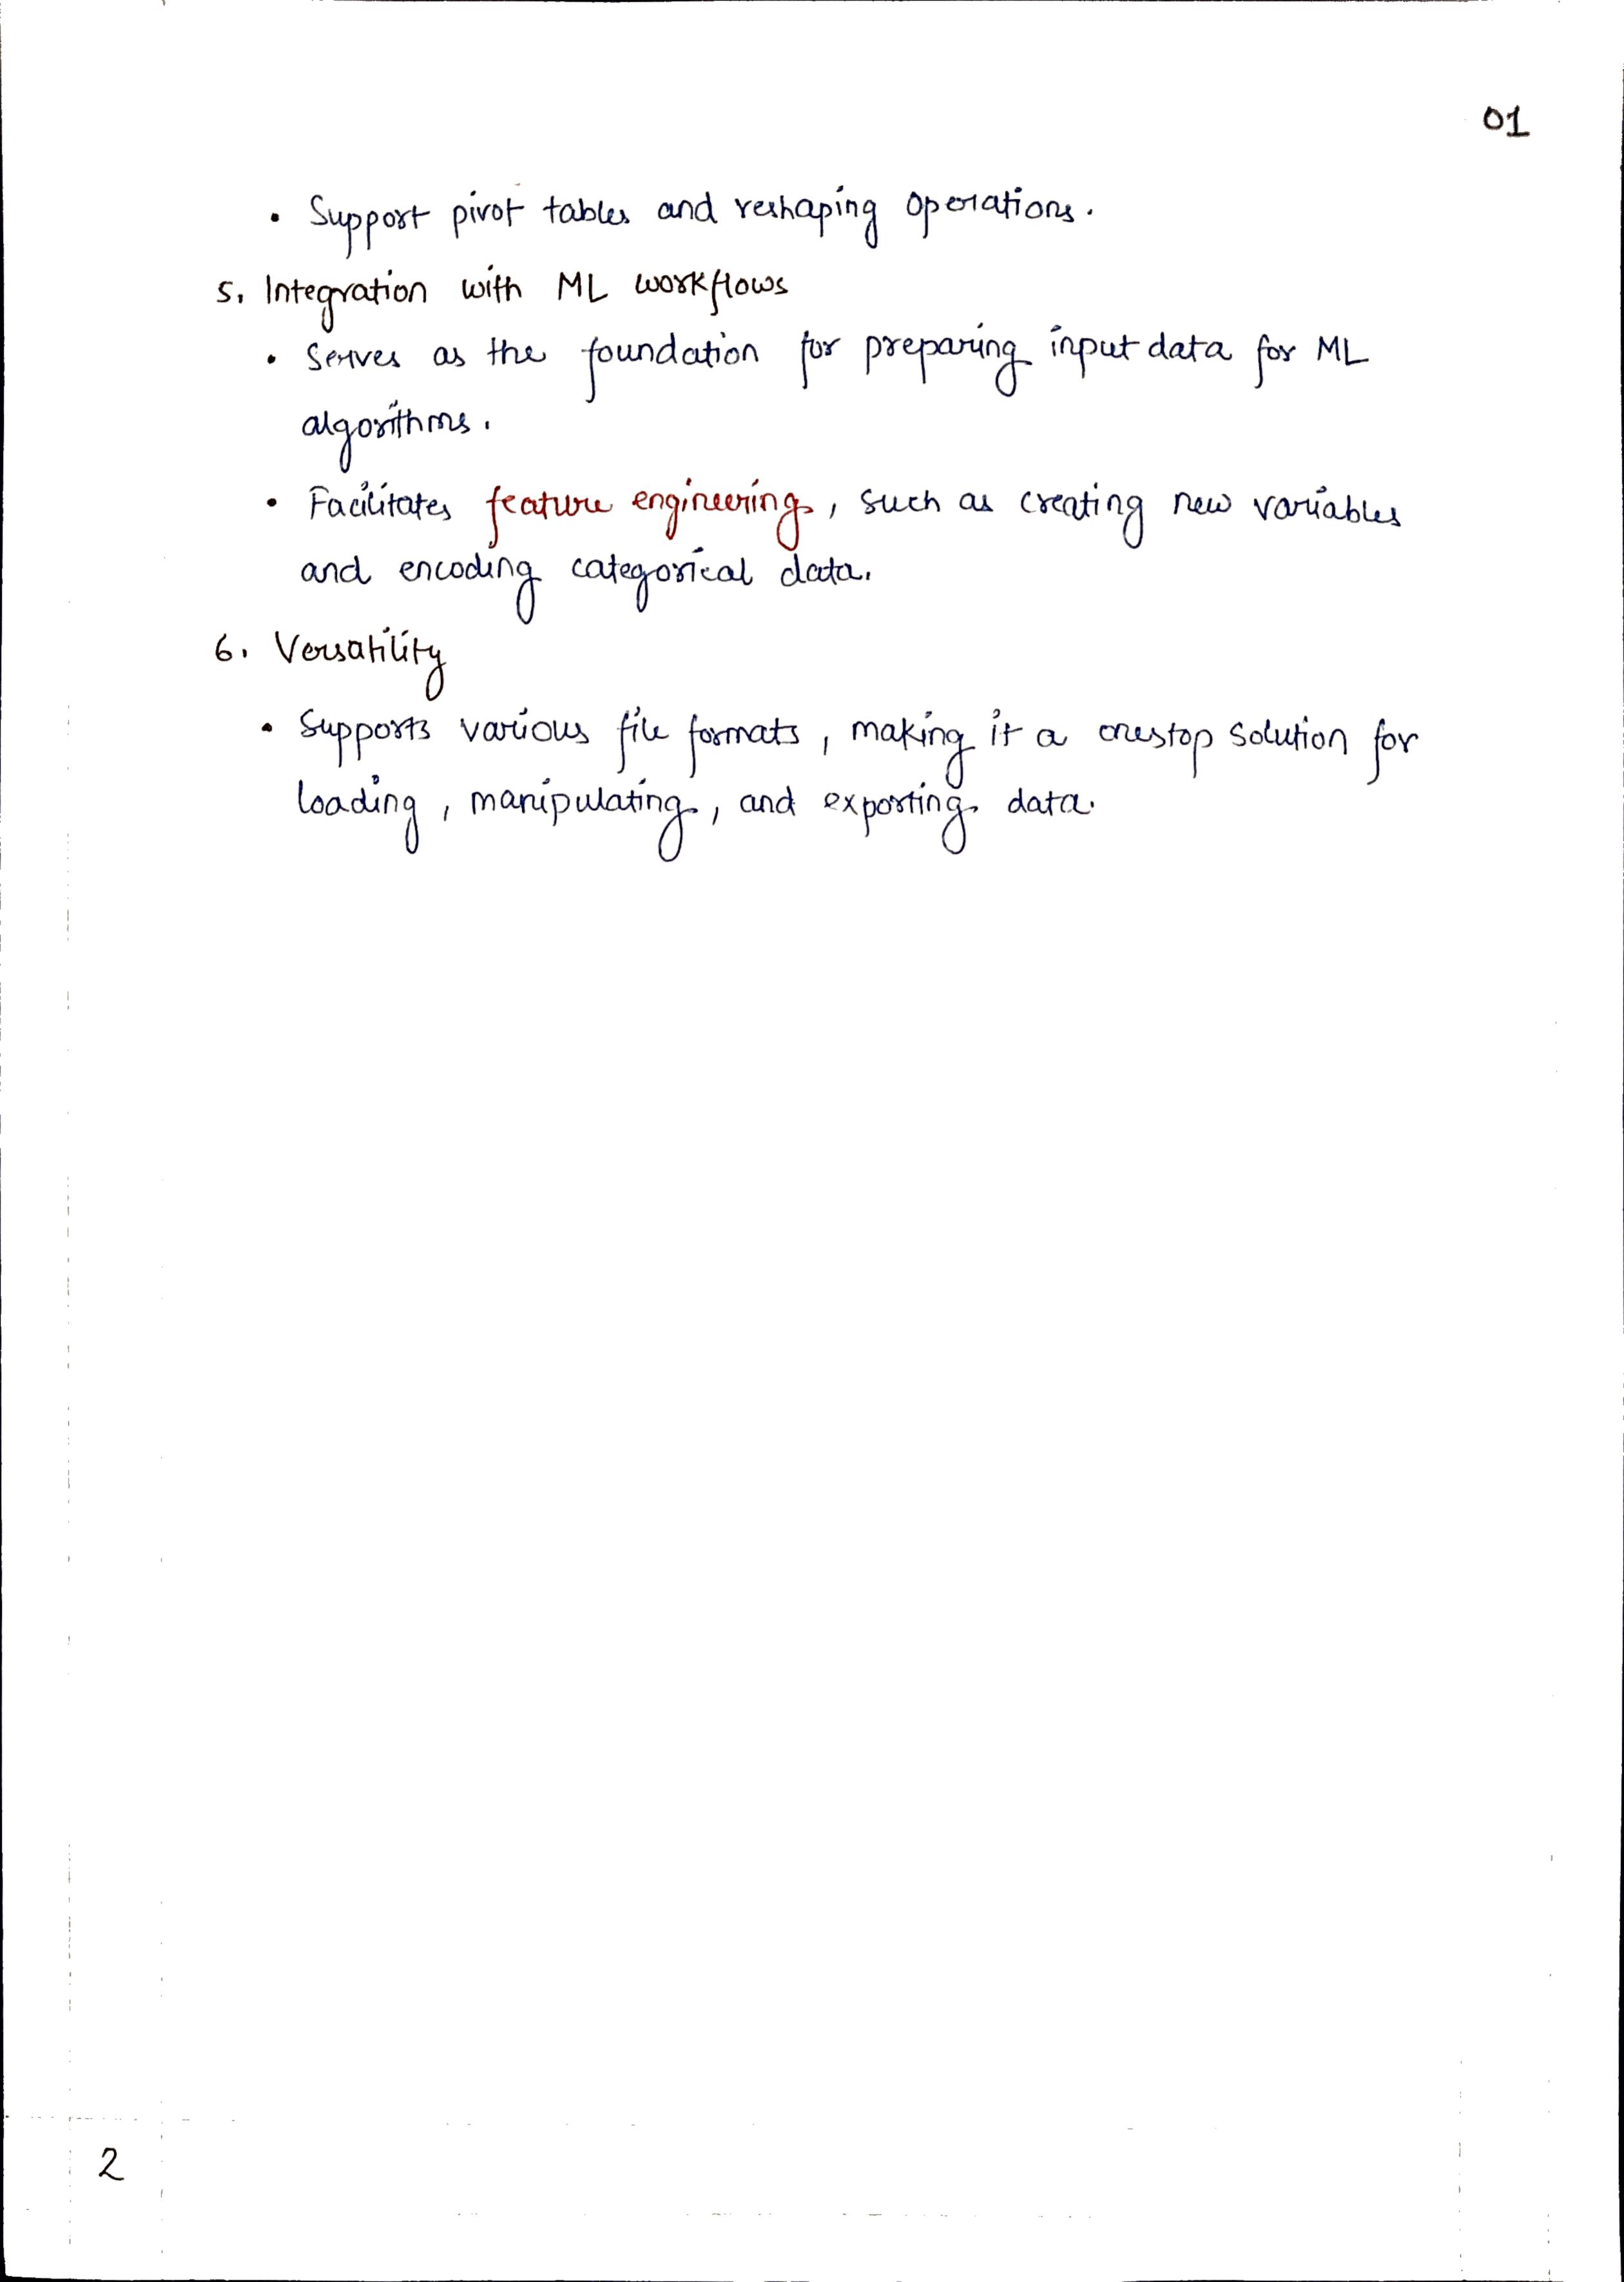 01
• Support pivot tables and reshaping operations.
5. Integration with ML workflows
• Serves as the foundation for preparing input data for ML
algorithms.
• Facilitates feature engineering, such as creating new variables
and encoding categorical data.
6. Versatility
• Supports various file formats, making it a onestop solution for
loading, manipulating, and exporting data.
2